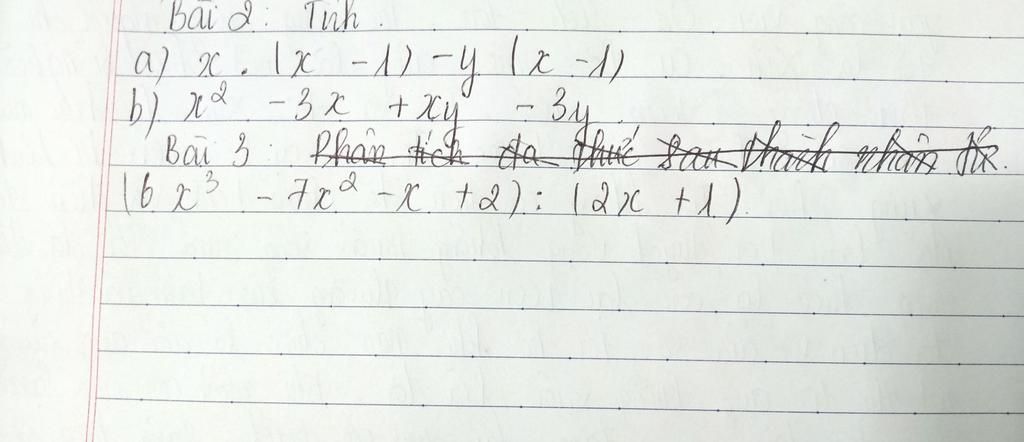 Bài 2: Tính.
a) x . (x - 1) - y (x - 1)
b) x² - 3x + xy - 3y.
Bài 3: Phân tích đa thức sau thành nhân tử.
(6x³ - 7x² - x + 2) : (2x + 1)